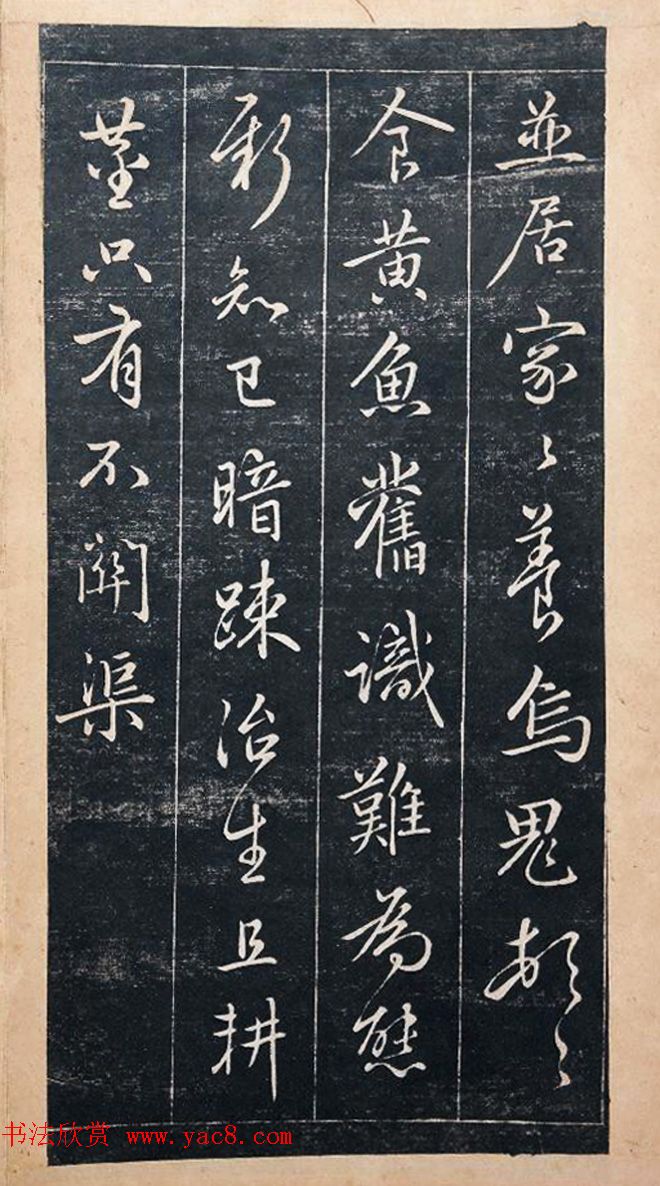 並居家〻養烏鬼頓〻
食黄魚舊識難為態
新知已暗踈治生且耕
鑿只有不關渠
书法欣赏 www.yac8.com